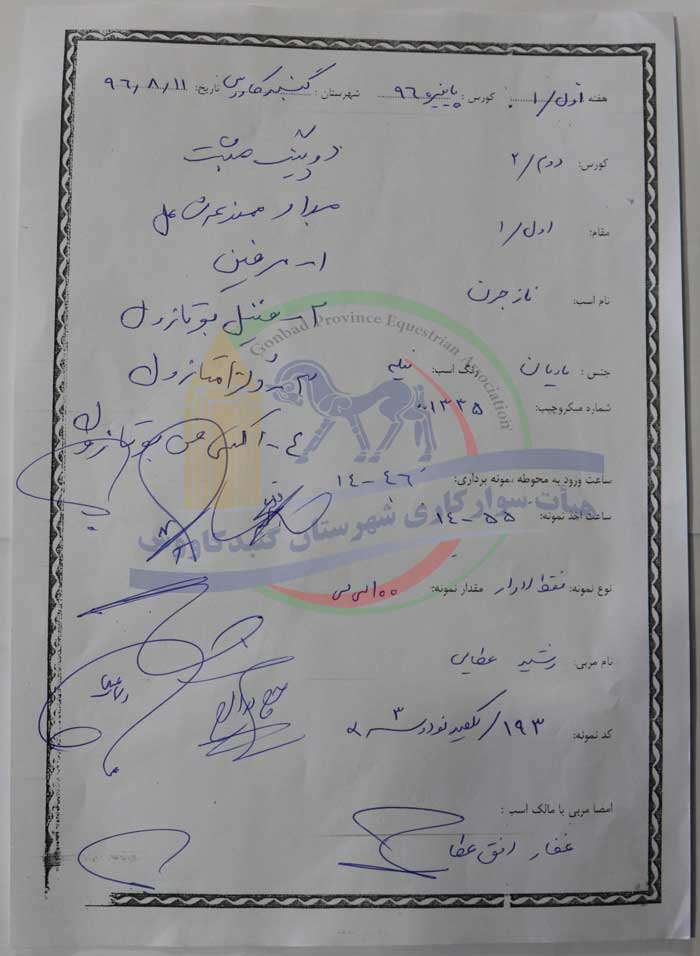 هفته: اول/۱ کورس: پاییزه ۹۶ شهرستان: گنبدکاووس تاریخ: ۹۶,۸,۱۱
کورس: دوم/۲
دوپینگ مثبت
مقام: اول/۱
مواد
نام اسب: ناز جرن
۱- مرفین
۲- فنیل بوتازون
Gonbad Province Equestrian Association
جنس: مادیان رنگ اسب: نیله
۳-
شماره میکروچیپ: ۰۰۱۳۳۵
۴- اکسی فن بوتازون
ساعت ورود به محوطه نمونه برداری: ۱۴-۴۶
ساعت اخذ نمونه: ۱۴-۵۵
هیأت سوارکاری شهرستان گنبدکاووس
نوع نمونه: فقط ادرار مقدار نمونه: ۱۰۰ سی سی
نام مربی: رشید عطایی
کد نمونه: ۱۹۳/یکصد نود و سه
امضا مربی یا مالک اسب:
غفار افق عطا